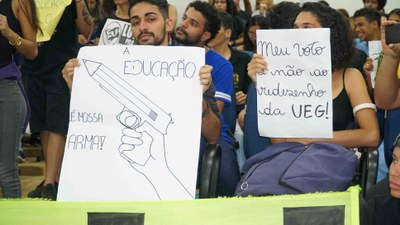 A
EDUCAÇÃO
É NOSSA
ARMA!
MEU VOTO
É NÃO AO
REDEZENHO
DA UEG!